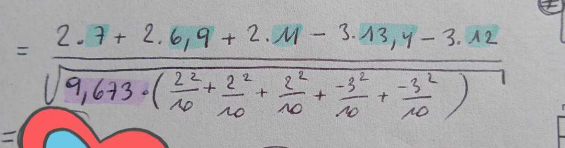 = 2.7 + 2.6,9 + 2.11 - 3.13,4 - 3.12
√ 9,673 · ( 2²/10 + 2²/10 + 2²/10 + -3²/10 + -3²/10 )
=